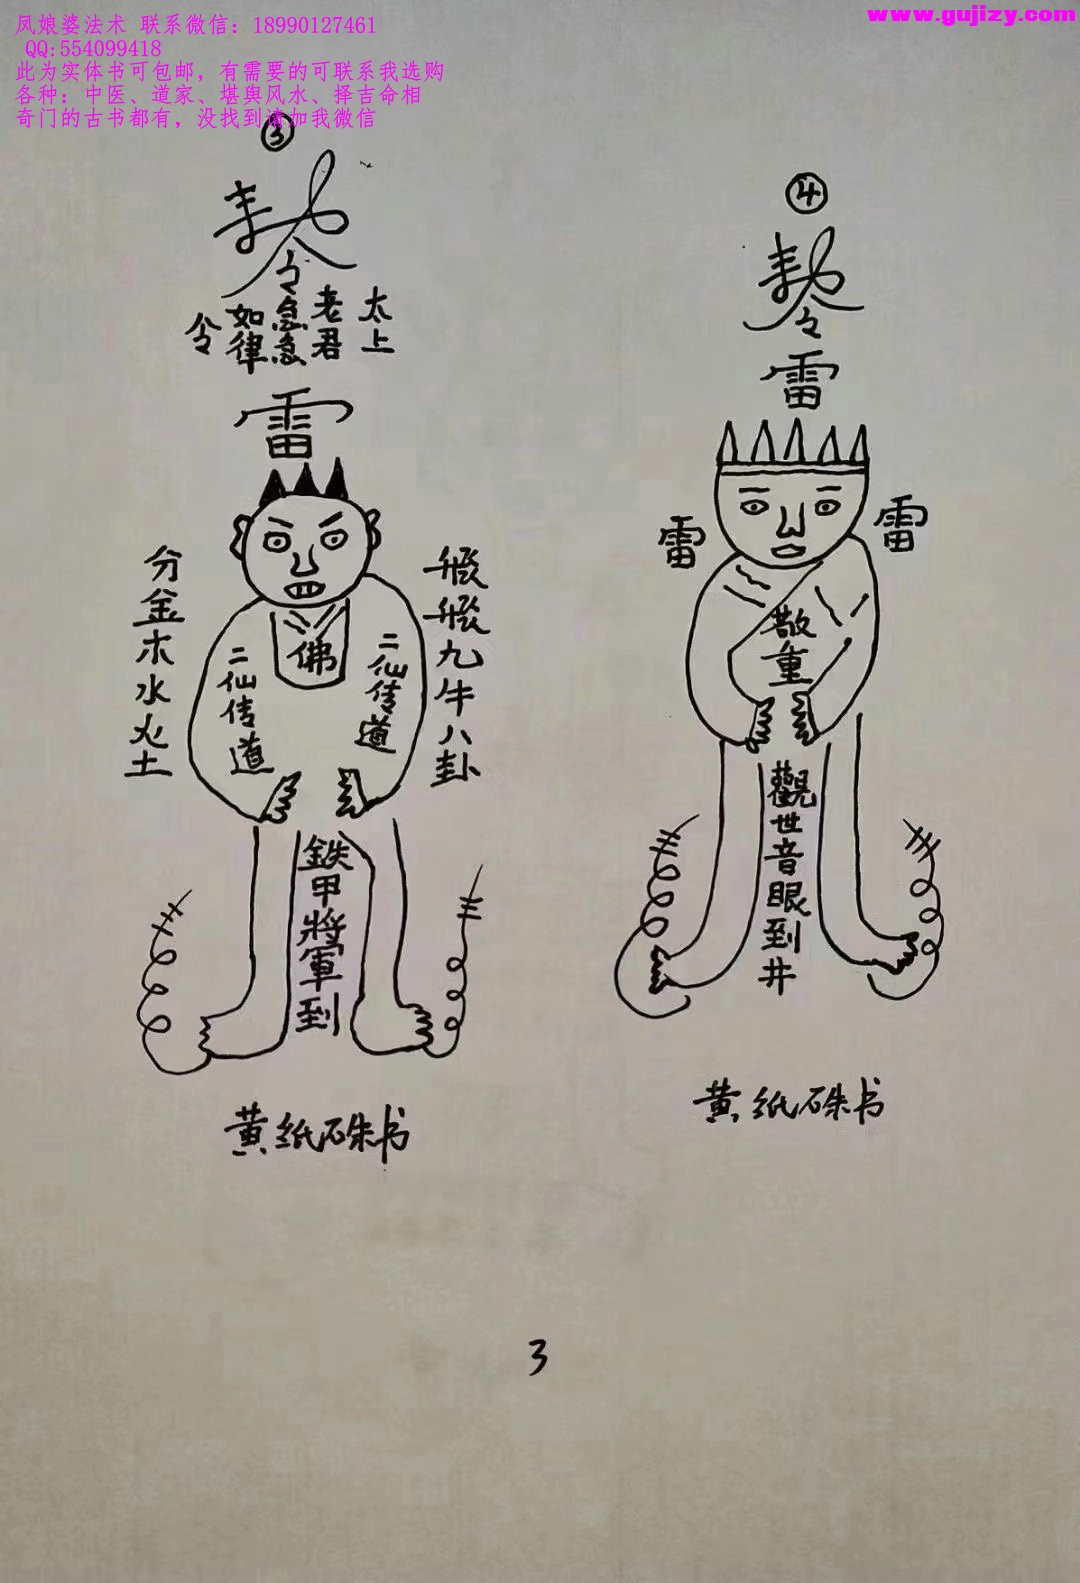 凤娘婆法术 联系微信：18990127461
QQ:554099418
此为实体书可包邮，有需要的可联系我选购
各种：中医、道家、堪舆风水、择吉命相
奇门的古书都有，没找到请加我微信
www.gujizy.com
③
令
太上
老君
急急
如律
令
雷
佛
二仙传道
二仙传道
九牛八卦
分金木水火土
鉄甲將軍到
黄纸硃书
④
令
雷
雷
雷
敬重
觀世音眼到井
黄纸硃书
3